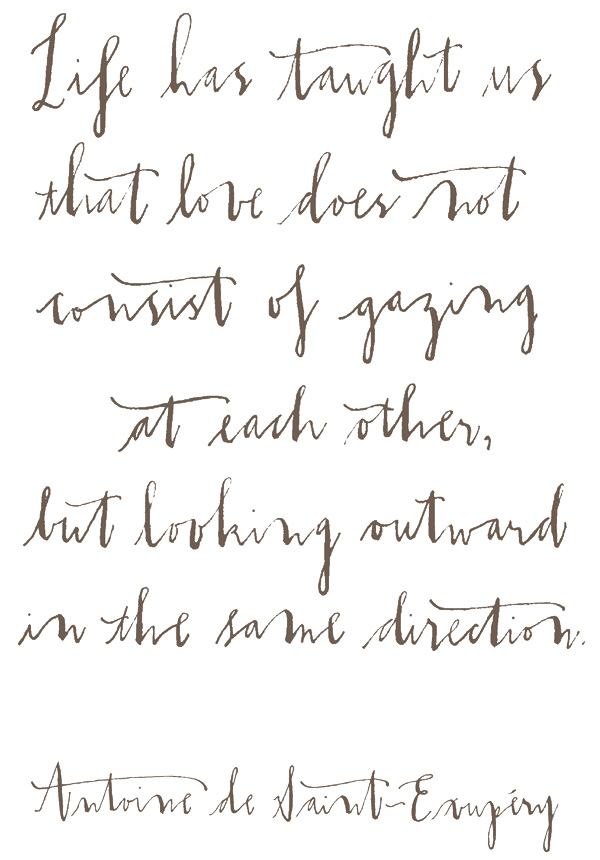 Life has taught us
that love does not
consist of gazing
at each other,
but looking outward
in the same direction.
Antoine de Saint-Exupéry